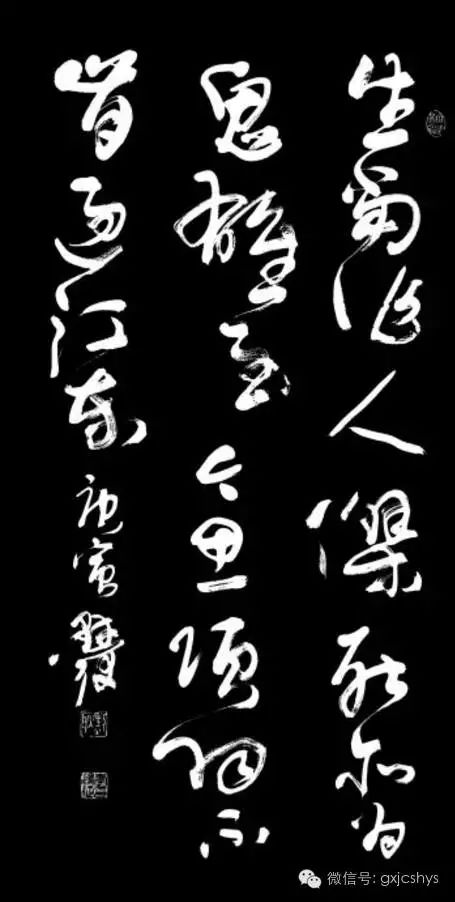 生当作人傑死亦为
鬼雄至今思项羽不
肯过江东
庚寅
微信号: gxjcshys